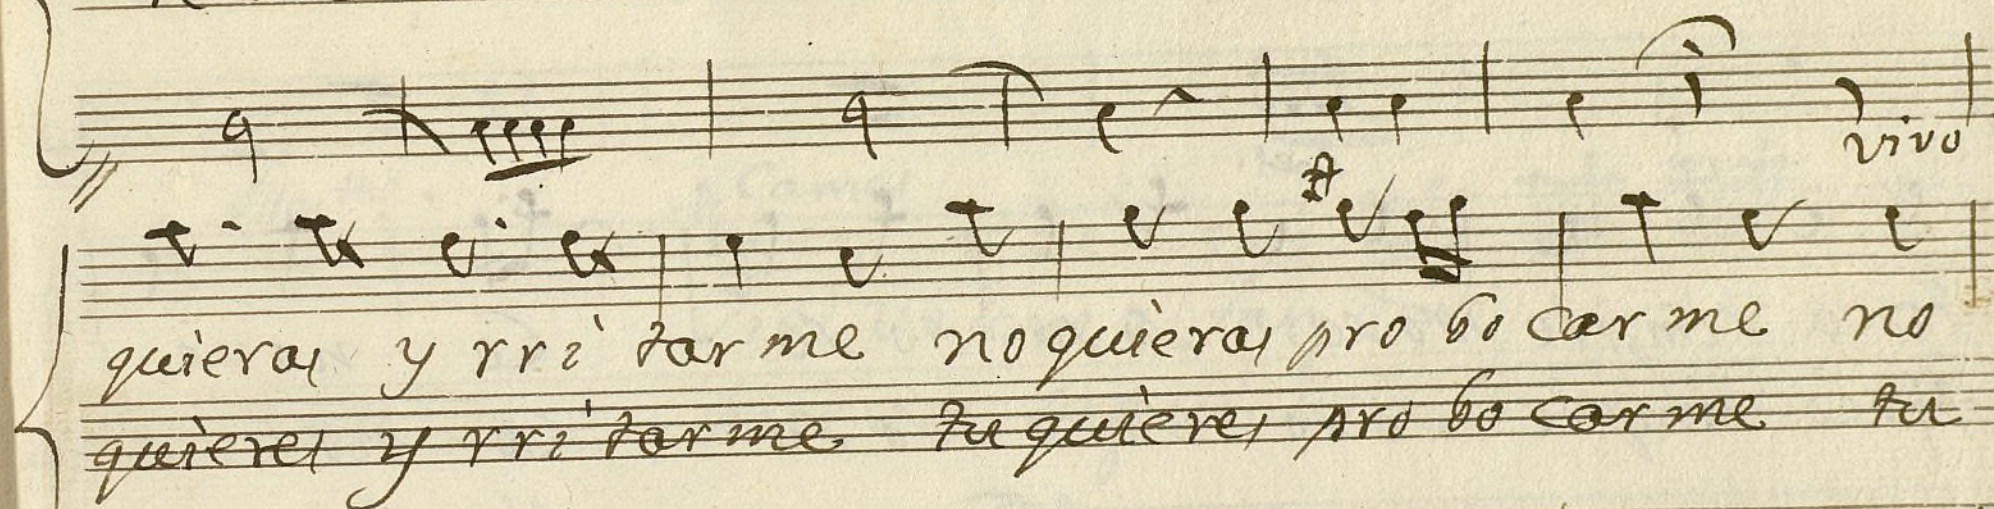 vivo
quieras y rri tar me no quieras pro bo car me no
quieres y rri tar me tu quieres pro bo car me tu